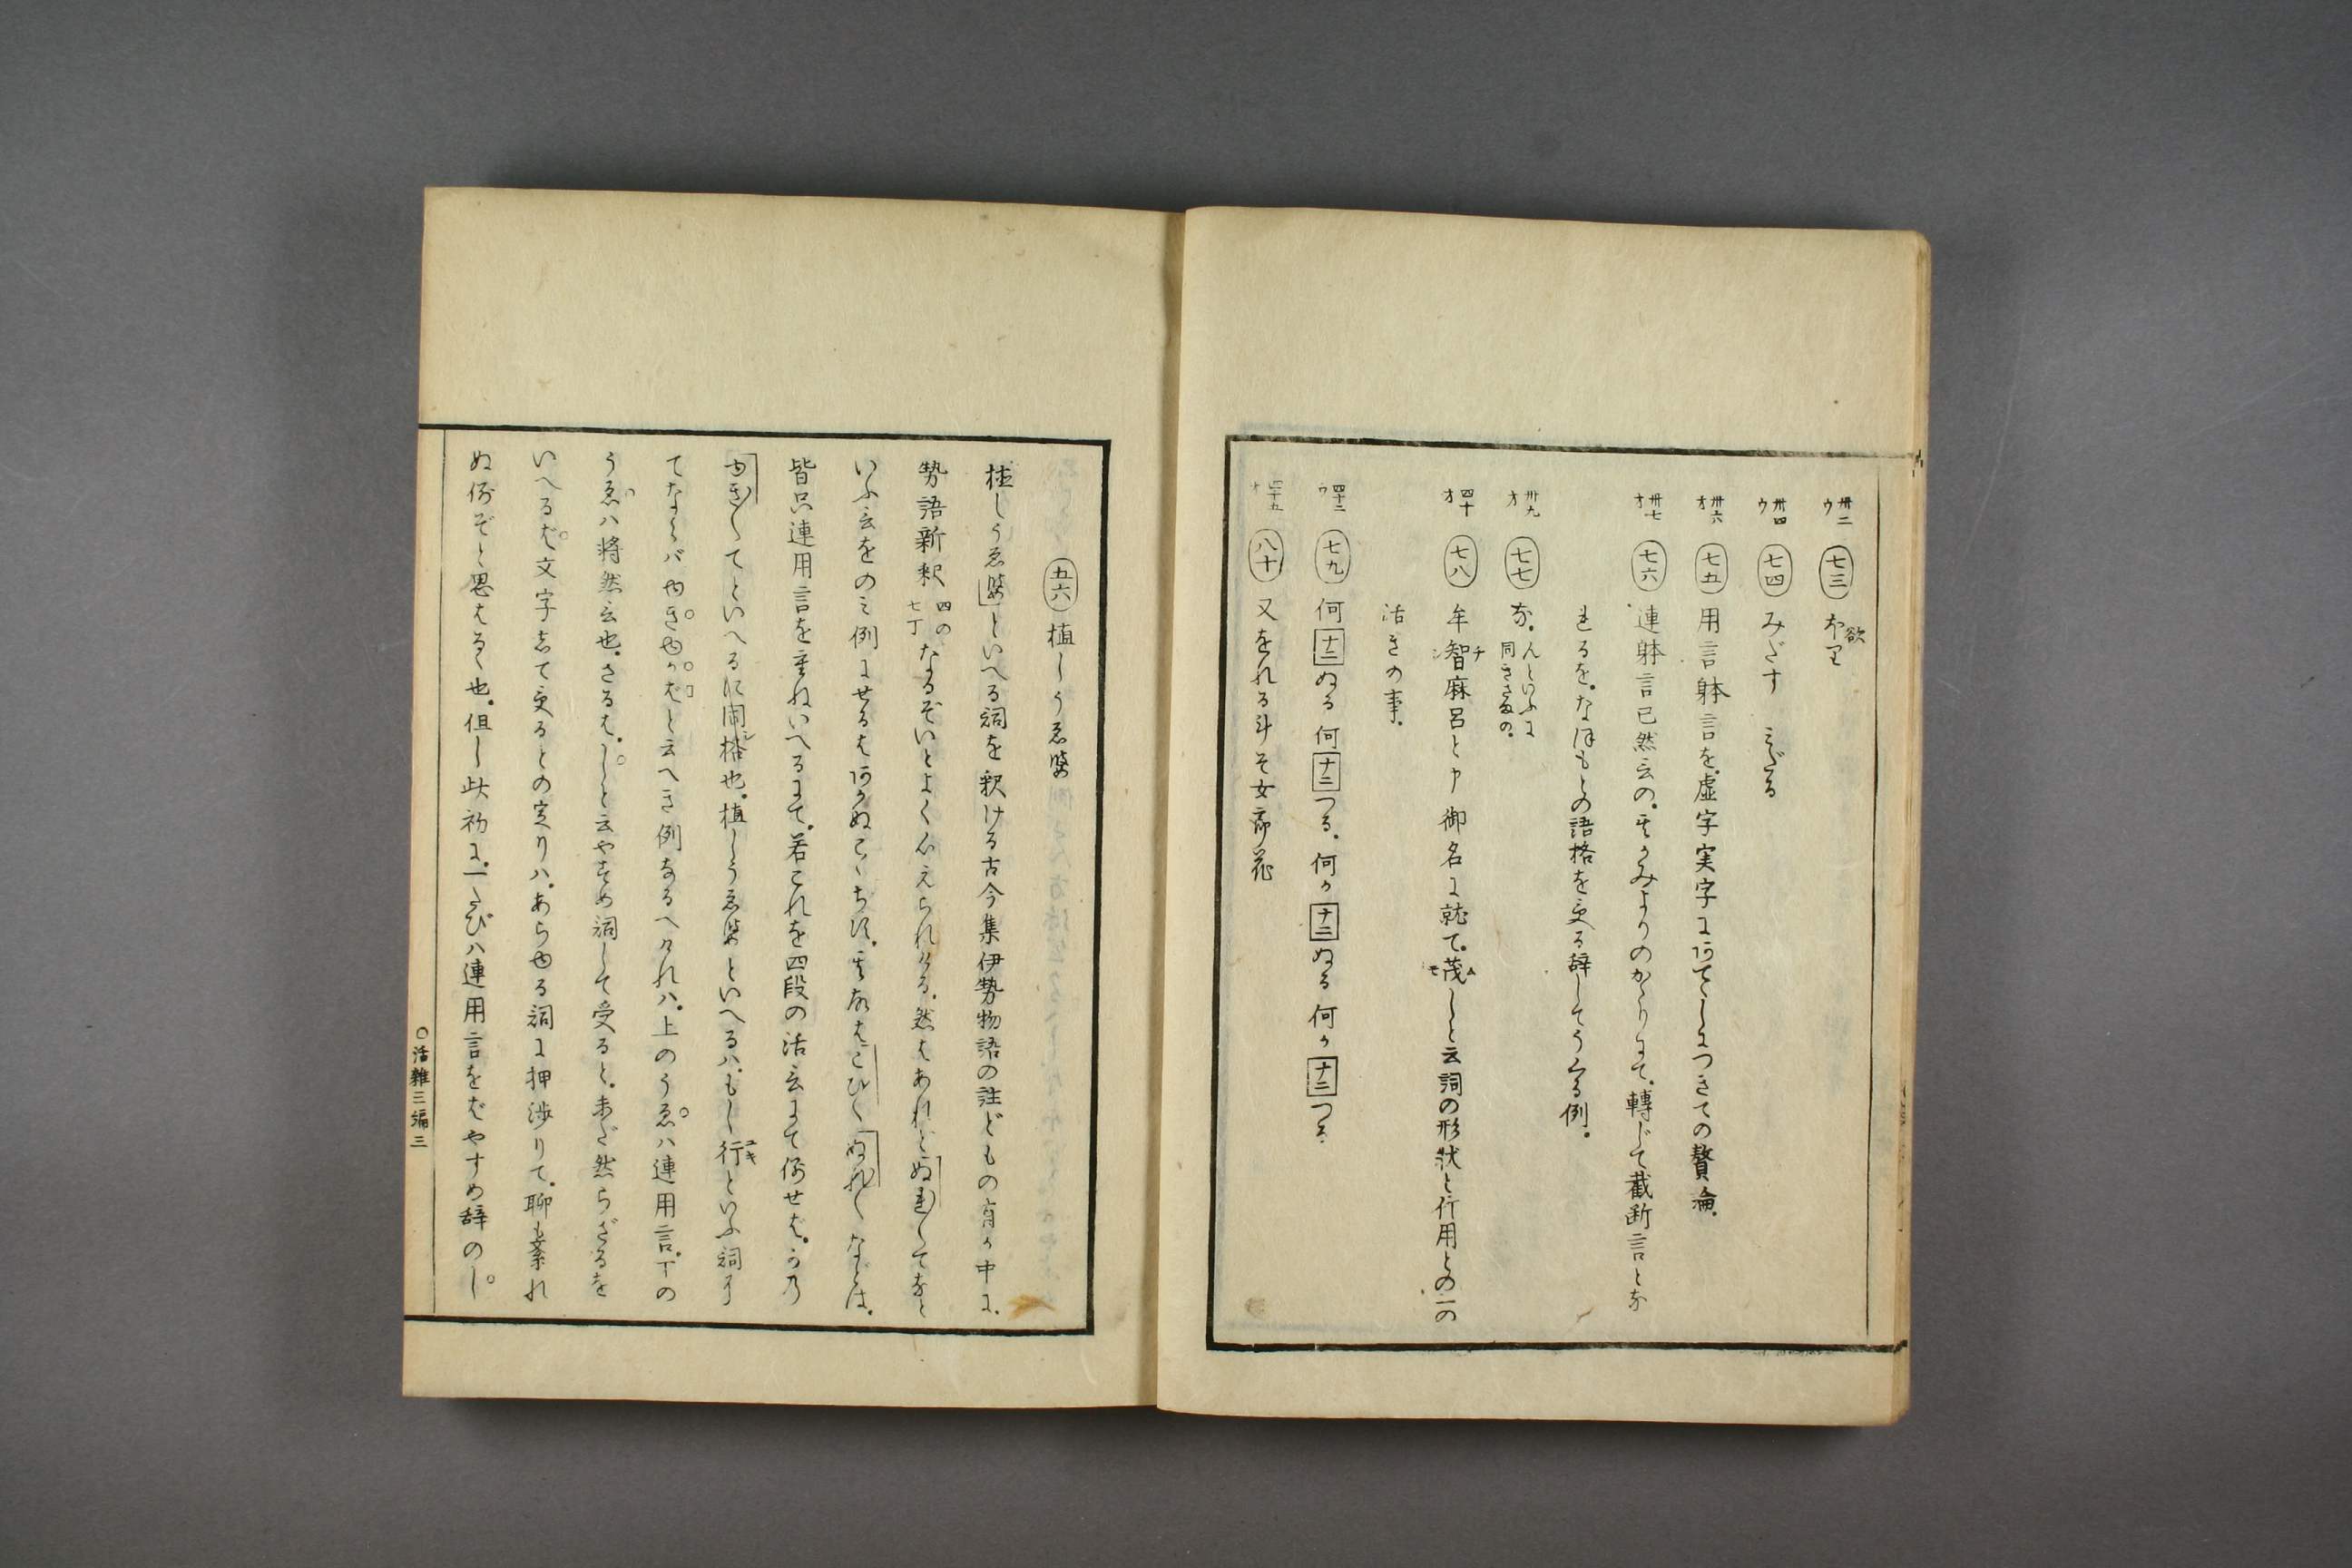 卅二ウ 七三 欲
卅四ウ 七四 みだす みだる
卅六オ 七五 用言躰言を虚字実字にあてていにつきての贅論
卅七オ 七六 連躰言已然言のそのかみよりのかかりにて轉じて截断言とな
れるをなほもとの語格を受る辞してうくる例
卅九オ 七七 な んといふに同きさまの
四十オ 七八 牟智麻呂と申御名に就て茂しと云詞の形状と作用との二の
活きの事
四十二ウ 七九 何十二ぬる何十二つる何か十二ぬる何か十二つる
八十 又をれる斗そ女郎花
五六 植しうゑば
植しうゑばといへる詞を釈ける古今集伊勢物語の註どもの有か中に
勢語新釈四の七丁なるぞいとよく心えられける然はあれどぬれ〱てなと
いふ言をの三例にせるはあかぬここちす其故はこひ〱ぬれ〱などは
皆只連用言を重ねいへるにて若これを四段の活言にて例せば
ゆき〱てといへるに同格也植しうゑばといへるはもし行といふ詞
てならバゆきゆかばと云へき例なるへけれハ上のうゑハ連用言下の
うゑハ将然言也さるはしと云やすめ詞して受ると未だ然らざるを
いへるば文字して受るとの定りハあらゆる詞に押渉りて聊も紊れ
ぬ例ぞと思はるる也但し此初に一たびハ連用言をばやすめ辞のし
○活雑三編三